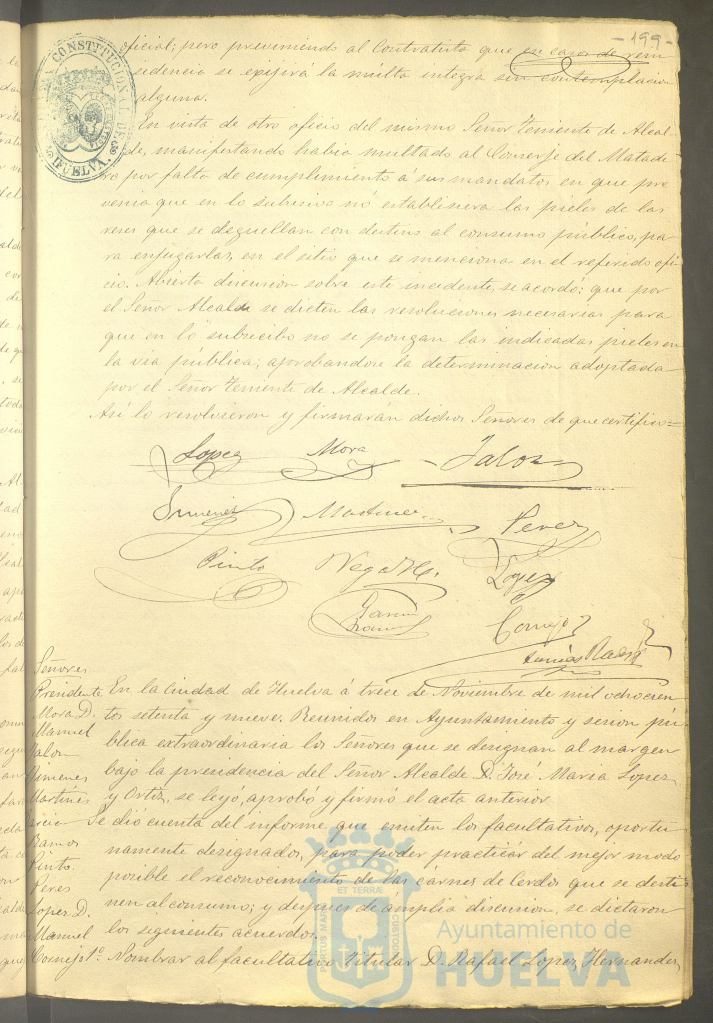 - 199 -
CONSTITUCIONAL DE
HUELVA
oficial; pero previniendo al Contratista que en casos de rein
sidencia se exijirá la multa integra sin contemplacion
alguna.
En vista de otro oficio del mismo Señor Teniente de Alcal-
de, manifestando habia multado al Conserje del Matade
ro por falta de cumplimiento á sus mandatos en que pre
venia que en lo subcesivo nó establesiera las pieles de las
reses que se deguellan con destino al consumo público, pa
ra enjugarlas, en el sitio que se menciona en el referido ofi-
cio. Abierta discusion sobre este incidente, se acordó: que por
el Señor Alcalde se dicten las resoluciones necesarias para
que en lo subcecibo no se pongan las indicadas pieles en
la via pública; aprobandose la determinacion adoptada
por el Señor Teniente de Alcalde.
Asi lo resolvieron y firmarán dichos Señores de que certifico=
Lopez Mora Jalon
Jimenez Martinez Perez
Pinto Vega Lopez
Garcia Ramos Cornejo
Señores
Presidente
Mora D.
Manuel
Jalon
Jimenes
Martines
Garcia
Ramos
Pinto
Peres
Lopez D.
Manuel
Cornejo
En la Ciudad de Huelva á trece de Noviembre de mil ochocien
tos setenta y nueve. Reunidos en Ayuntamiento y sesion pú-
blica extraordinaria los Señores que se designan al margen
bajo la presidencia del Señor Alcalde D. José Maria Lopez
y Ortiz, se leyó, aprobó y firmó el acta anterior.
Se dió cuenta del informe que emiten los facultativos, oportu-
namente designados, para poder practicar del mejor modo
posible el reconocimiento de las carnes de Cerdos que se desti
nen al consumo; y despues de amplia discusion, se dictaron
los siguientes acuerdos.
1º. Nombrar al facultativo titular D. Rafael Lopez Hernandez,
PORTUS MARIS ET TERRAE CUSTODIA
Ayuntamiento de
HUELVA